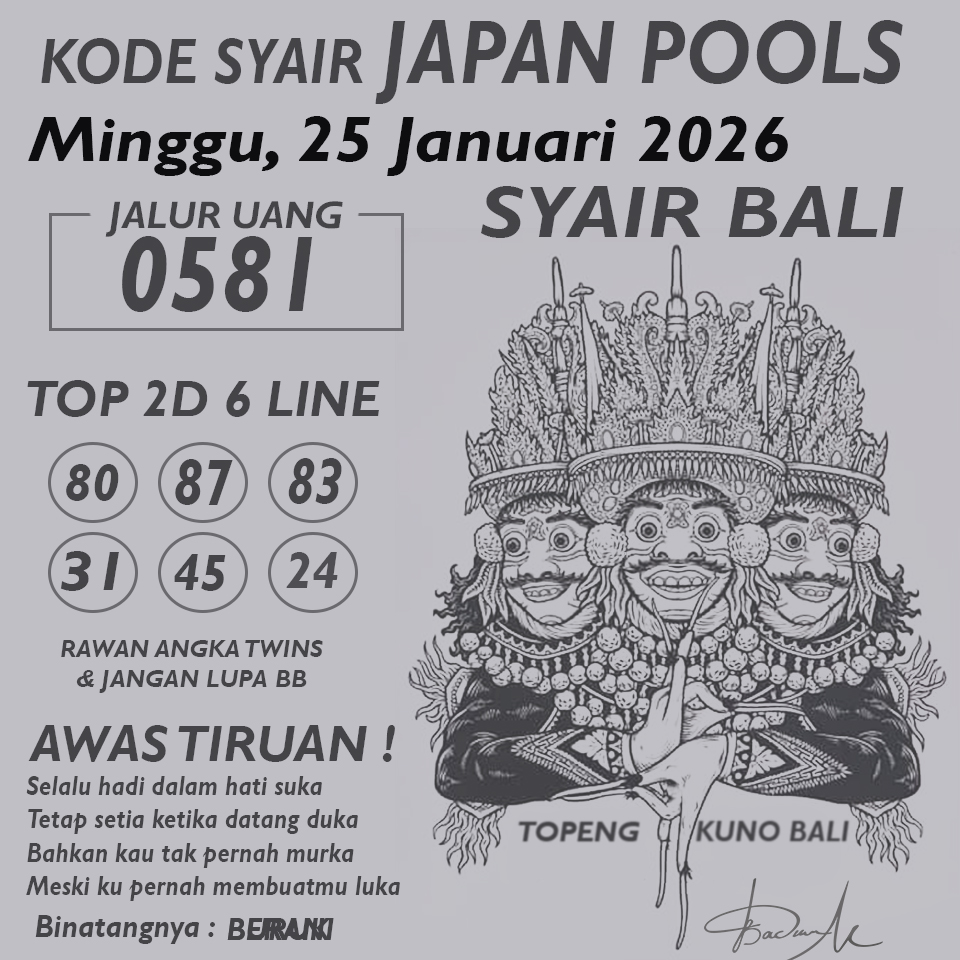 KODE SYAIR JAPAN POOLS
Minggu, 25 Januari 2026
SYAIR BALI
JALUR UANG
0581
TOP 2D 6 LINE
80 87 83
31 45 24
RAWAN ANGKA TWINS
& JANGAN LUPA BB
AWAS TIRUAN !
Selalu hadi dalam hati suka
Tetap setia ketika datang duka
Bahkan kau tak pernah murka
Meski ku pernah membuatmu luka
Binatangnya :
TOPENG KUNO BALI